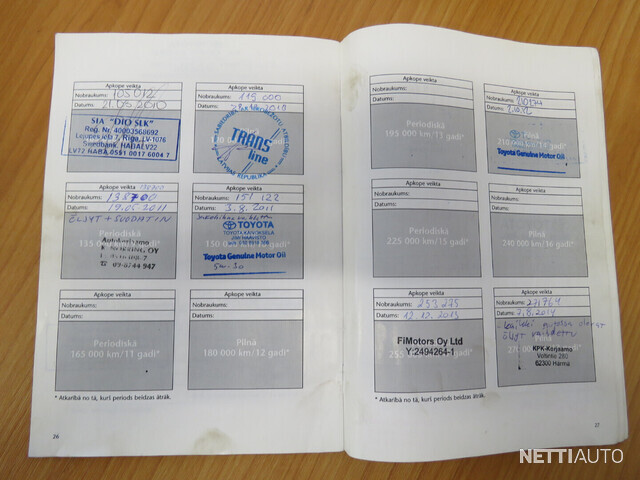 Apkope veikta
Nobraukums: 105012
Datums: 21.05.2010
SIA "DIO SLK"
Reg. Nr. 40003568692
Rīga, LV-1076
Swedbank, HABALV22
LV72 HABA 0551 0017 6004 7
Apkope veikta
Nobraukums: 119 000
Datums: 2010
TRANS
line
LATVIJAS REPUBLIKA
Apkope veikta
Nobraukums: 138700
Datums: 19.05.2011
ÖLJYT + SUODATIN
Periodiskā
Autokorjaamo
OY
Apkope veikta
Nobraukums: 151 122
Datums: 3.8.2011
TOYOTA
TOYOTA KANKISELA
Toyota Genuine Motor Oil
5w-30
Apkope veikta
Nobraukums:
Datums:
Periodiskā
165 000 km/11 gadi*
Apkope veikta
Nobraukums:
Datums:
Pilnā
180 000 km/12 gadi*
* Atkarībā no tā, kurš periods beidzas ātrāk.
26
Apkope veikta
Nobraukums:
Datums:
Periodiskā
195 000 km/13 gadi*
Apkope veikta
Nobraukums:
Datums:
Pilnā
TOYOTA
Toyota Genuine Motor Oil
Apkope veikta
Nobraukums:
Datums:
Periodiskā
225 000 km/15 gadi*
Apkope veikta
Nobraukums:
Datums:
Pilnā
240 000 km/16 gadi*
Apkope veikta
Nobraukums: 253 275
Datums: 12.12.2013
FiMotors Oy Ltd
Y:2494264-1
Apkope veikta
Nobraukums: 271764
Datums: 7.8.2014
KPK-Korjaamo
Voltintie 280
62300 Härmä
* Atkarībā no tā, kurš periods beidzas ātrāk.
27
NETTIAUTO